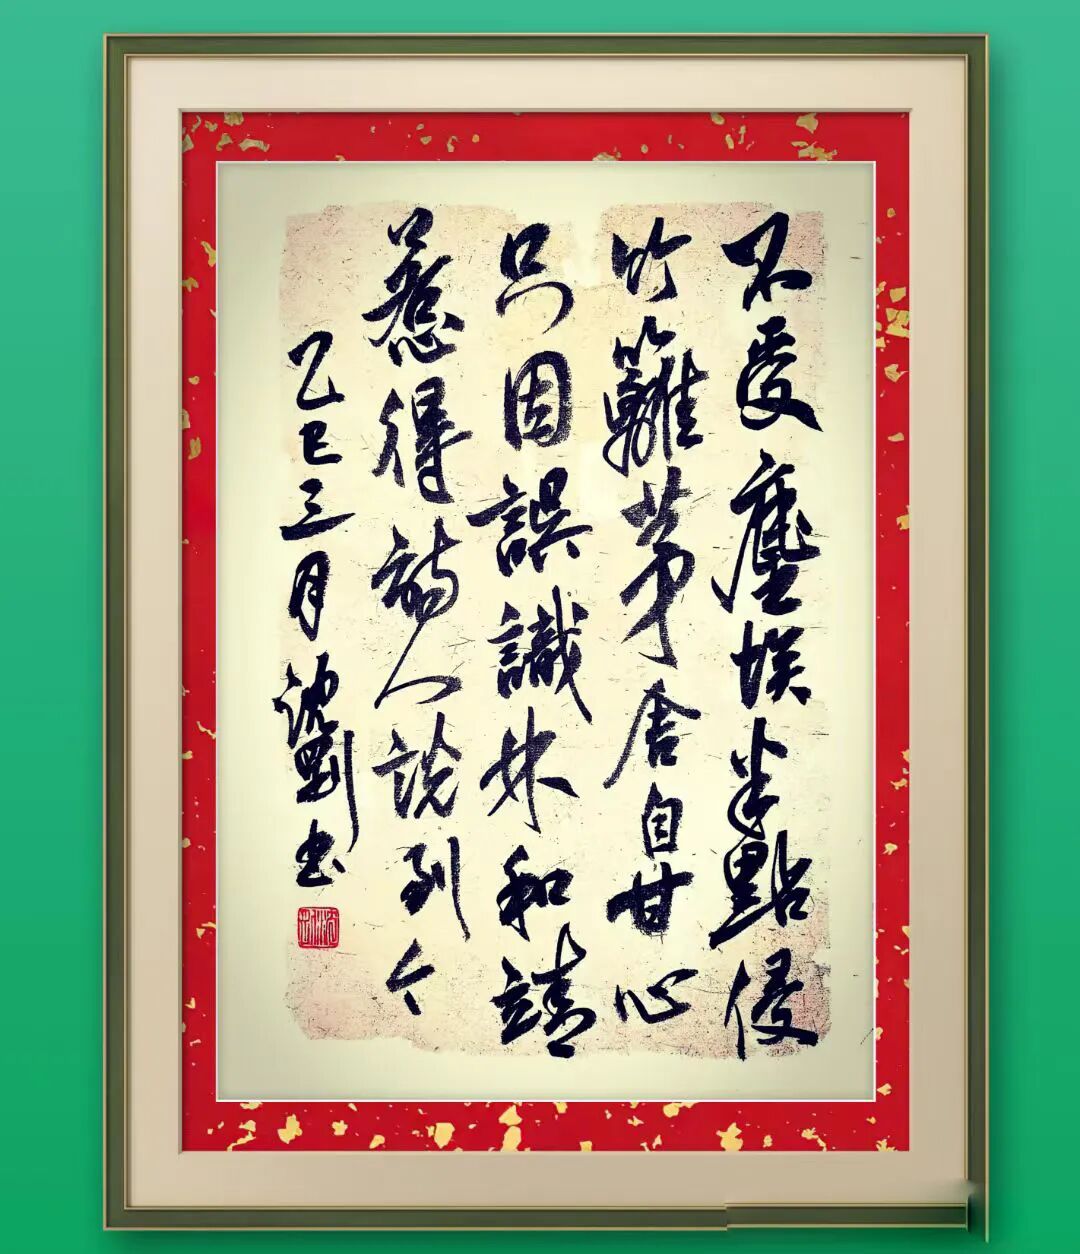 不受塵埃半點侵
竹籬茅舍自甘心
只因誤識林和靖
惹得詩人說到今
乙巳三月書